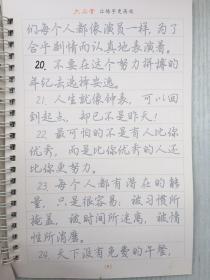 六品堂 让练字更高效
们每个人都像演员一样,为了
合乎剧情而认真地表演着。
20. 不要在这个努力拼搏的
年纪去选择安逸。
21. 人生就像钟表,可以回
到起点,却已不是昨天!
22. 最可怕的不是有人比你
优秀,而是比你优秀的人还
比你更努力。
23. 每个人都有潜在的能
量,只是很容易,被习惯所
掩盖,被时间所迷离,被惰
性所消磨。
24. 天下没有免费的午餐,